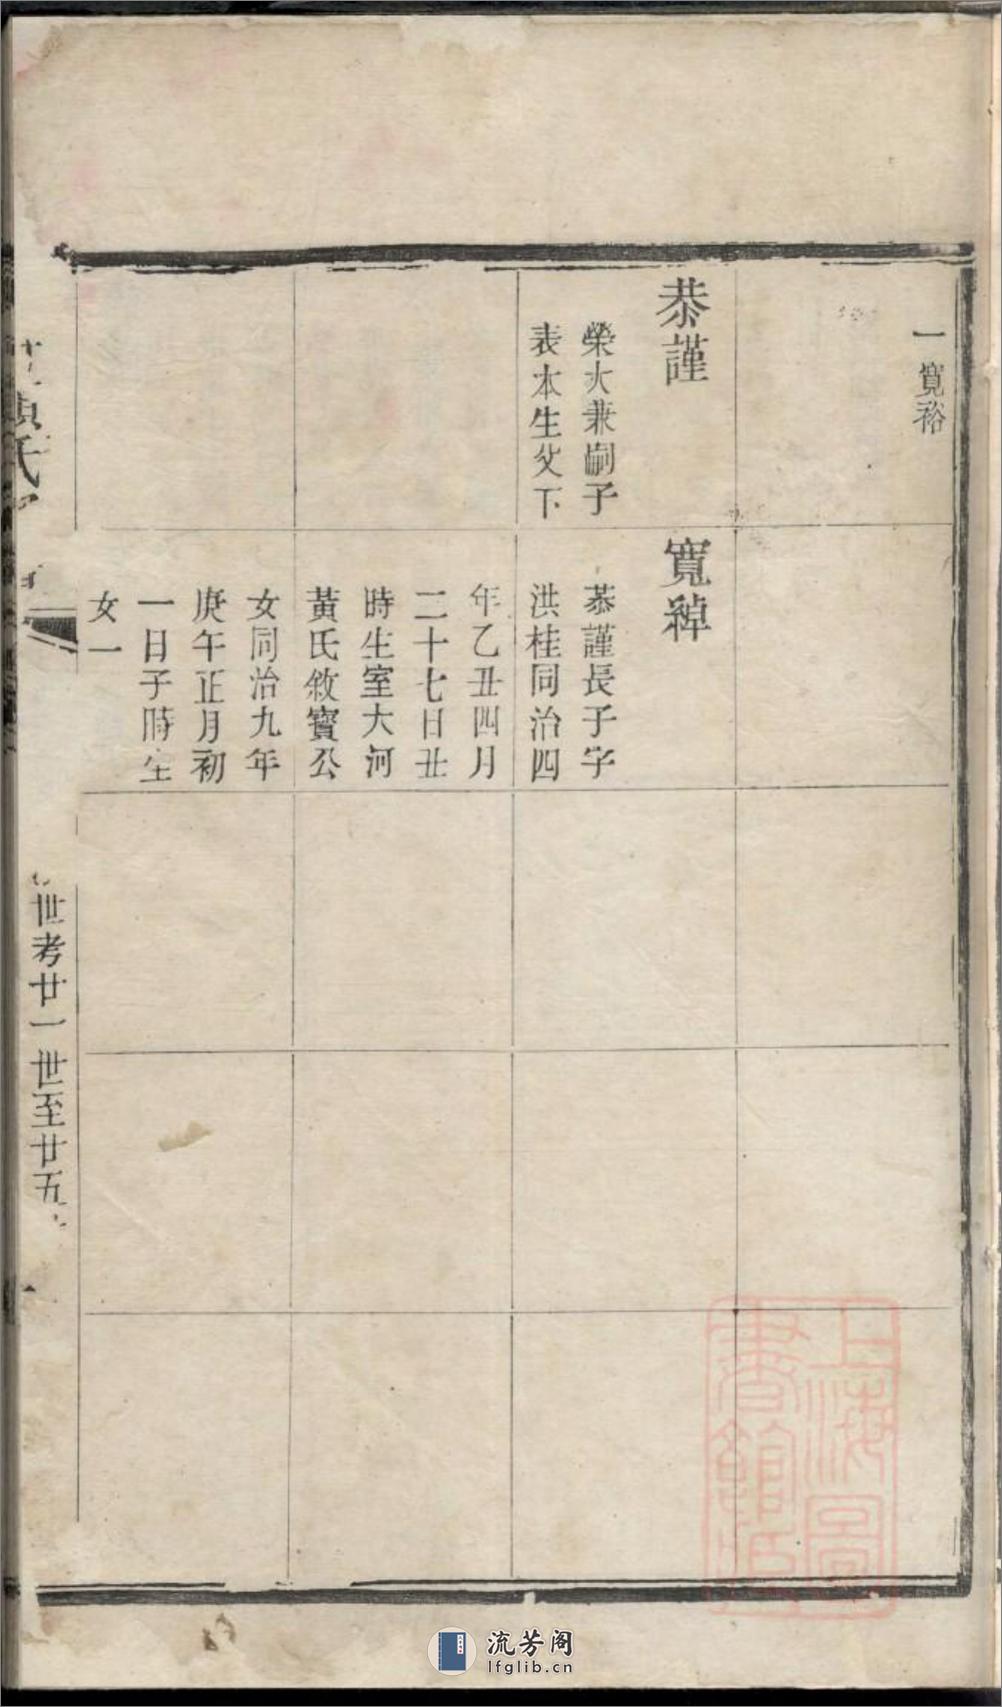 一寬裕
恭謹
榮大兼嗣子
表本生父下
寬綽
恭謹長子字
洪桂同治四
年乙丑四月
二十七日丑
時生室大河
黃氏敘寶公
女同治九年
庚午正月初
一日子時生
女一
世考廿一世至廿五
上海圖
書館藏
流芳阁
lfglib.cn